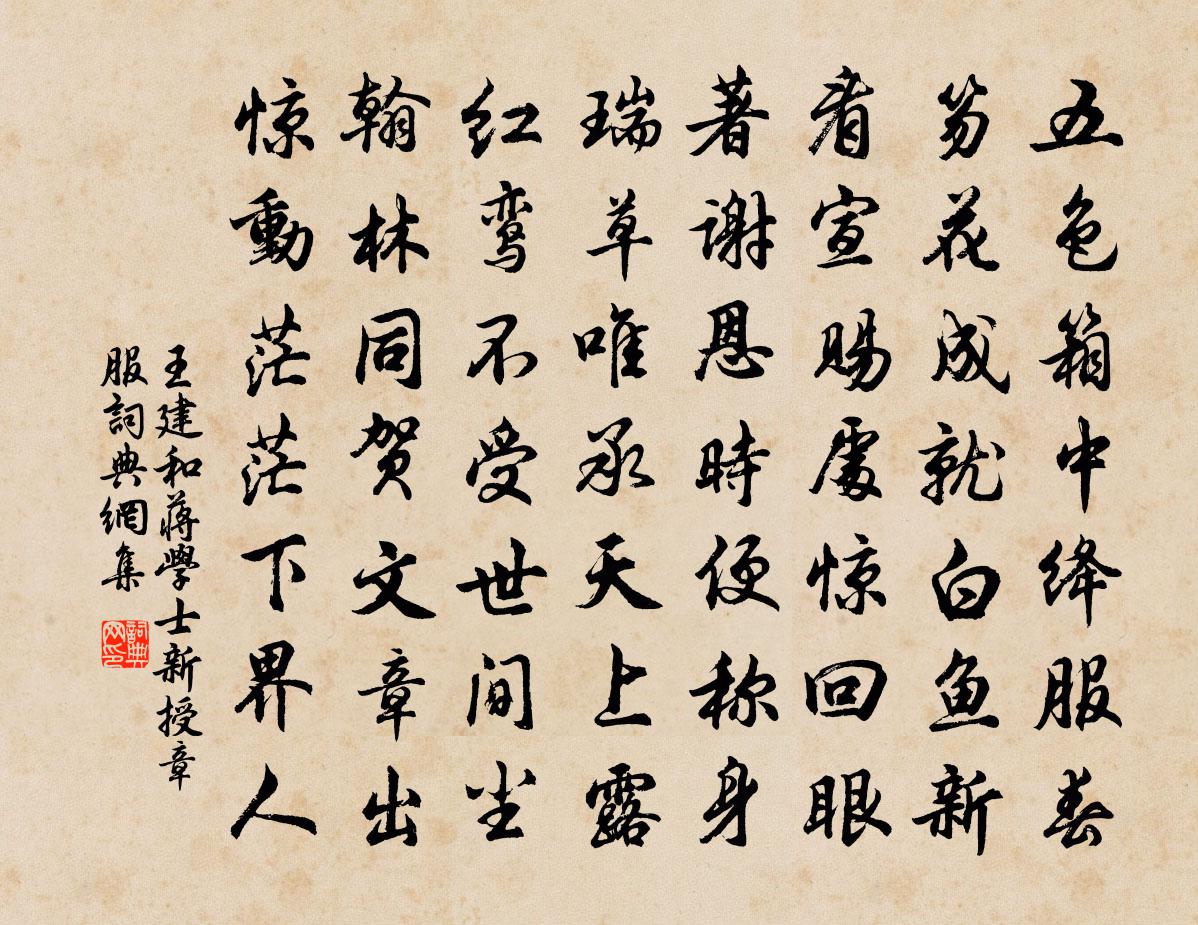 五色箱中绛服春
笏花成就白鱼新
看宣赐處惊回眼
著谢恩時便称身
瑞草唯承天上露
红鸾不受世间尘
翰林同贺文章出
惊動茫茫下界人
王建和蒋學士新授章
服詞典網集
詞典网印